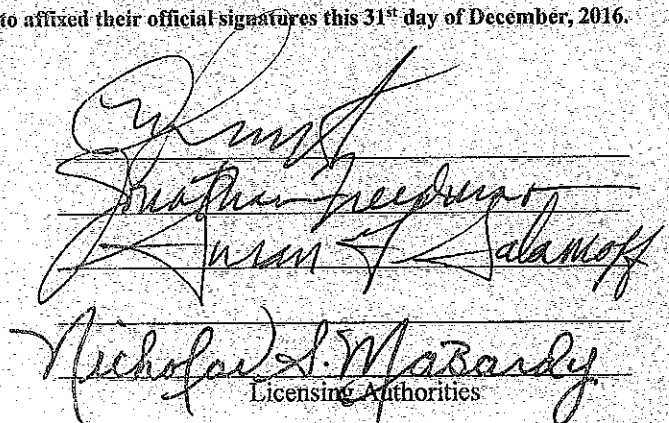 to affixed their official signatures this 31st day of December, 2016.
Jonathan Freedman
Susan F Salamoff
Nicholas S. MaBardy
Licensing Authorities